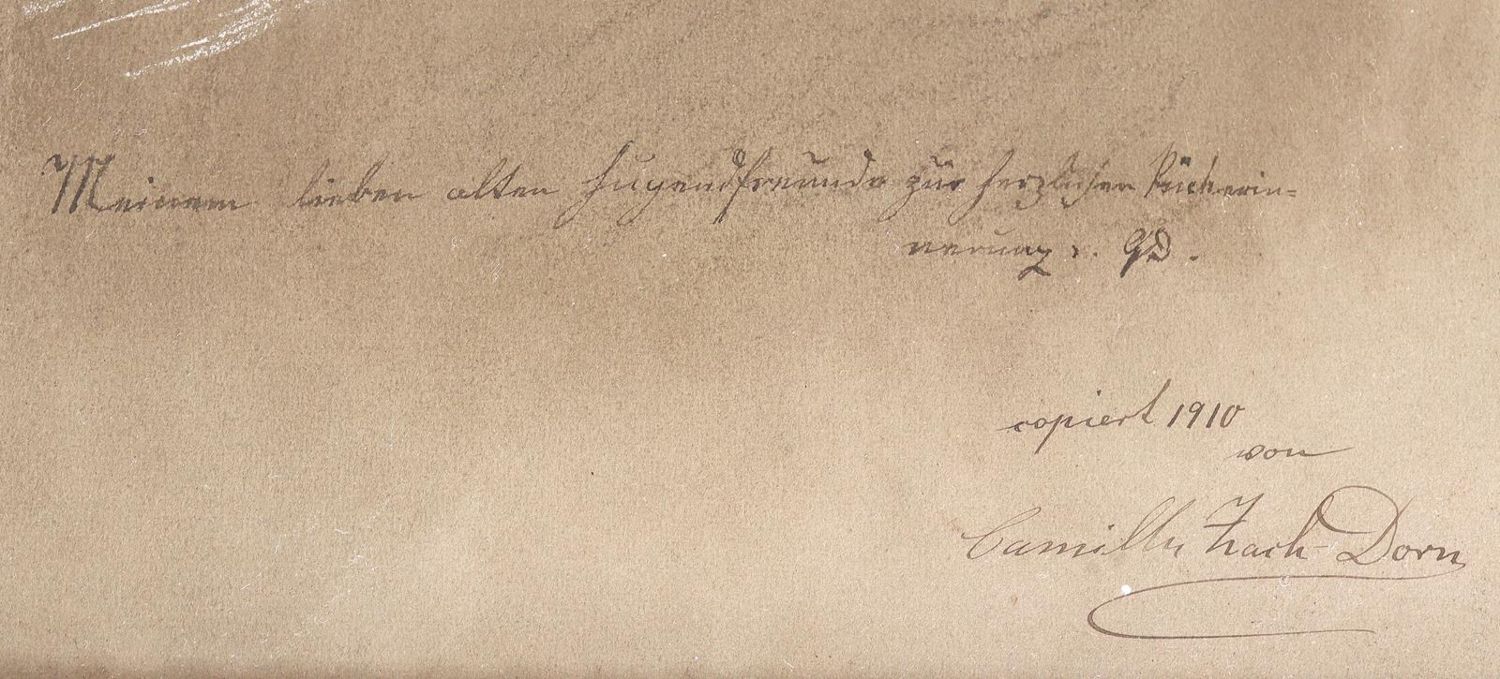 Meinem lieben alten Jugendfreunde zur herzlichen Rückerin-
nerung v. GD.
copiert 1910
von
Camilla Zach Dorn